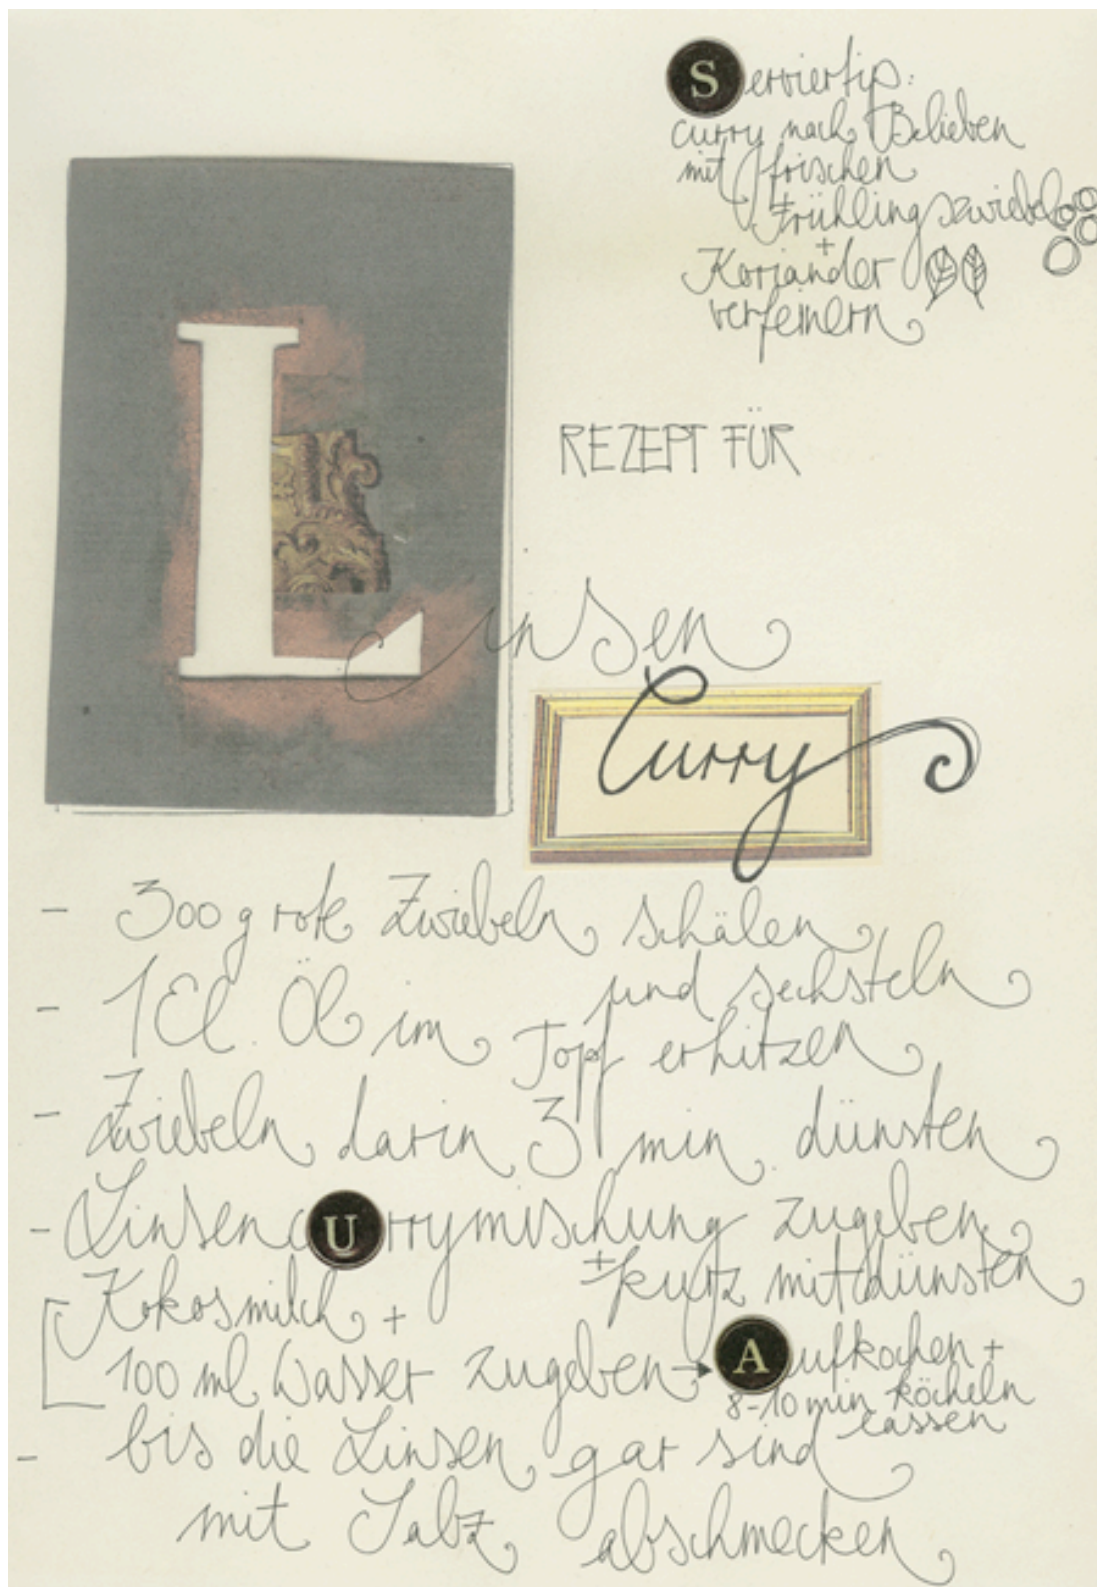 Serviertip:
curry nach Belieben
mit frischen
Frühlingszwiebeln
+
Koriander
verfeinern
REZEPT FÜR
Linsen
Curry
- 300 g rote Zwiebeln schälen
und sechsteln
- 1 El. Öl im Topf erhitzen
- Zwiebeln darin 3 min. dünsten
- Linsencurrymischung zugeben
+ kurz mitdünsten
Kokosmilch +
100 ml Wasser zugeben → Aufkochen +
8-10 min köcheln
lassen
- bis die Linsen gar sind
mit Salz abschmecken